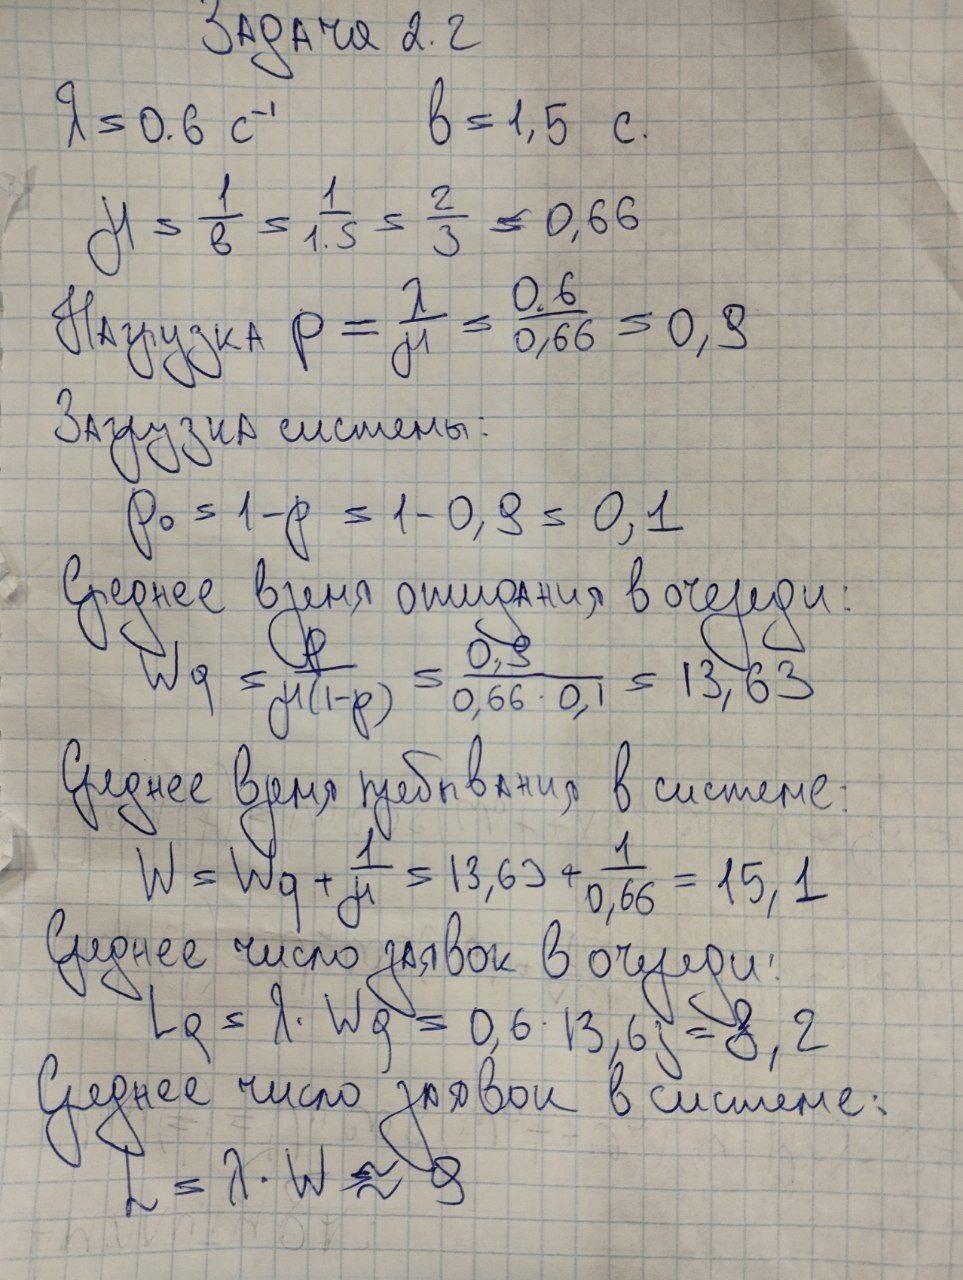 Задача 2.2
λ = 0.6 с⁻¹ b = 1,5 с.
μ = 1/b = 1/1.5 = 2/3 = 0,66
Нагрузка ρ = λ/μ = 0.6/0,66 = 0,9
Загрузка системы:
ρ₀ = 1-ρ = 1-0,9 = 0,1
Среднее время ожидания в очереди:
Wq = ρ/μ(1-ρ) = 0,9/0,66 · 0,1 = 13,63
Среднее время пребывания в системе:
W = Wq + 1/μ = 13,63 + 1/0,66 = 15,1
Среднее число заявок в очереди:
Lq = λ · Wq = 0,6 · 13,63 = 8,2
Среднее число заявок в системе:
L = λ · W ≈ 9